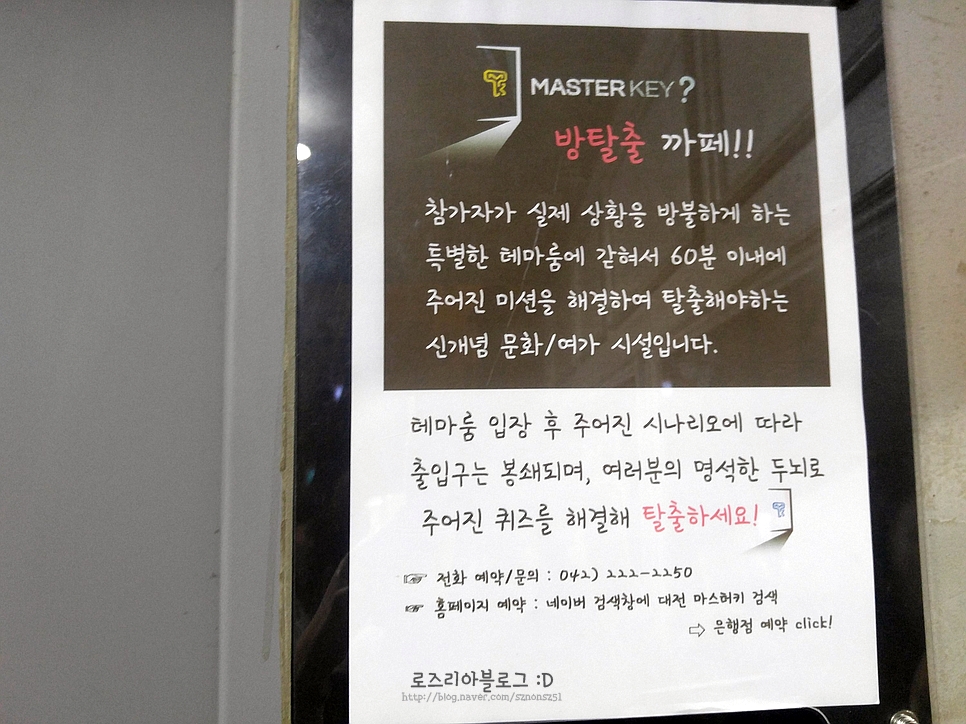 MASTER KEY?
방탈출 까페!!
참가자가 실제 상황을 방불하게 하는
특별한 테마룸에 갇혀서 60분 이내에
주어진 미션을 해결하여 탈출해야하는
신개념 문화/여가 시설입니다.
테마룸 입장 후 주어진 시나리오에 따라
출입구는 봉쇄되며, 여러분의 명석한 두뇌로
주어진 퀴즈를 해결해 탈출하세요!
☞ 전화 예약/문의 : 042) 222-2250
☞ 홈페이지 예약 : 네이버 검색창에 대전 마스터키 검색
⇨ 은행점 예약 click!
로즈리아블로그 :D
http://blog.naver.com/sznonsz51